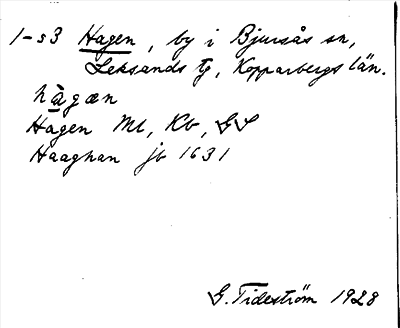 1-s3 Hagen, by i Bjursås sn,
Leksands tg, Kopparbergs län.
hàgæn
Hagen Ml, Kb, GS
Haaghan jb 1631
G. Tideström 1928